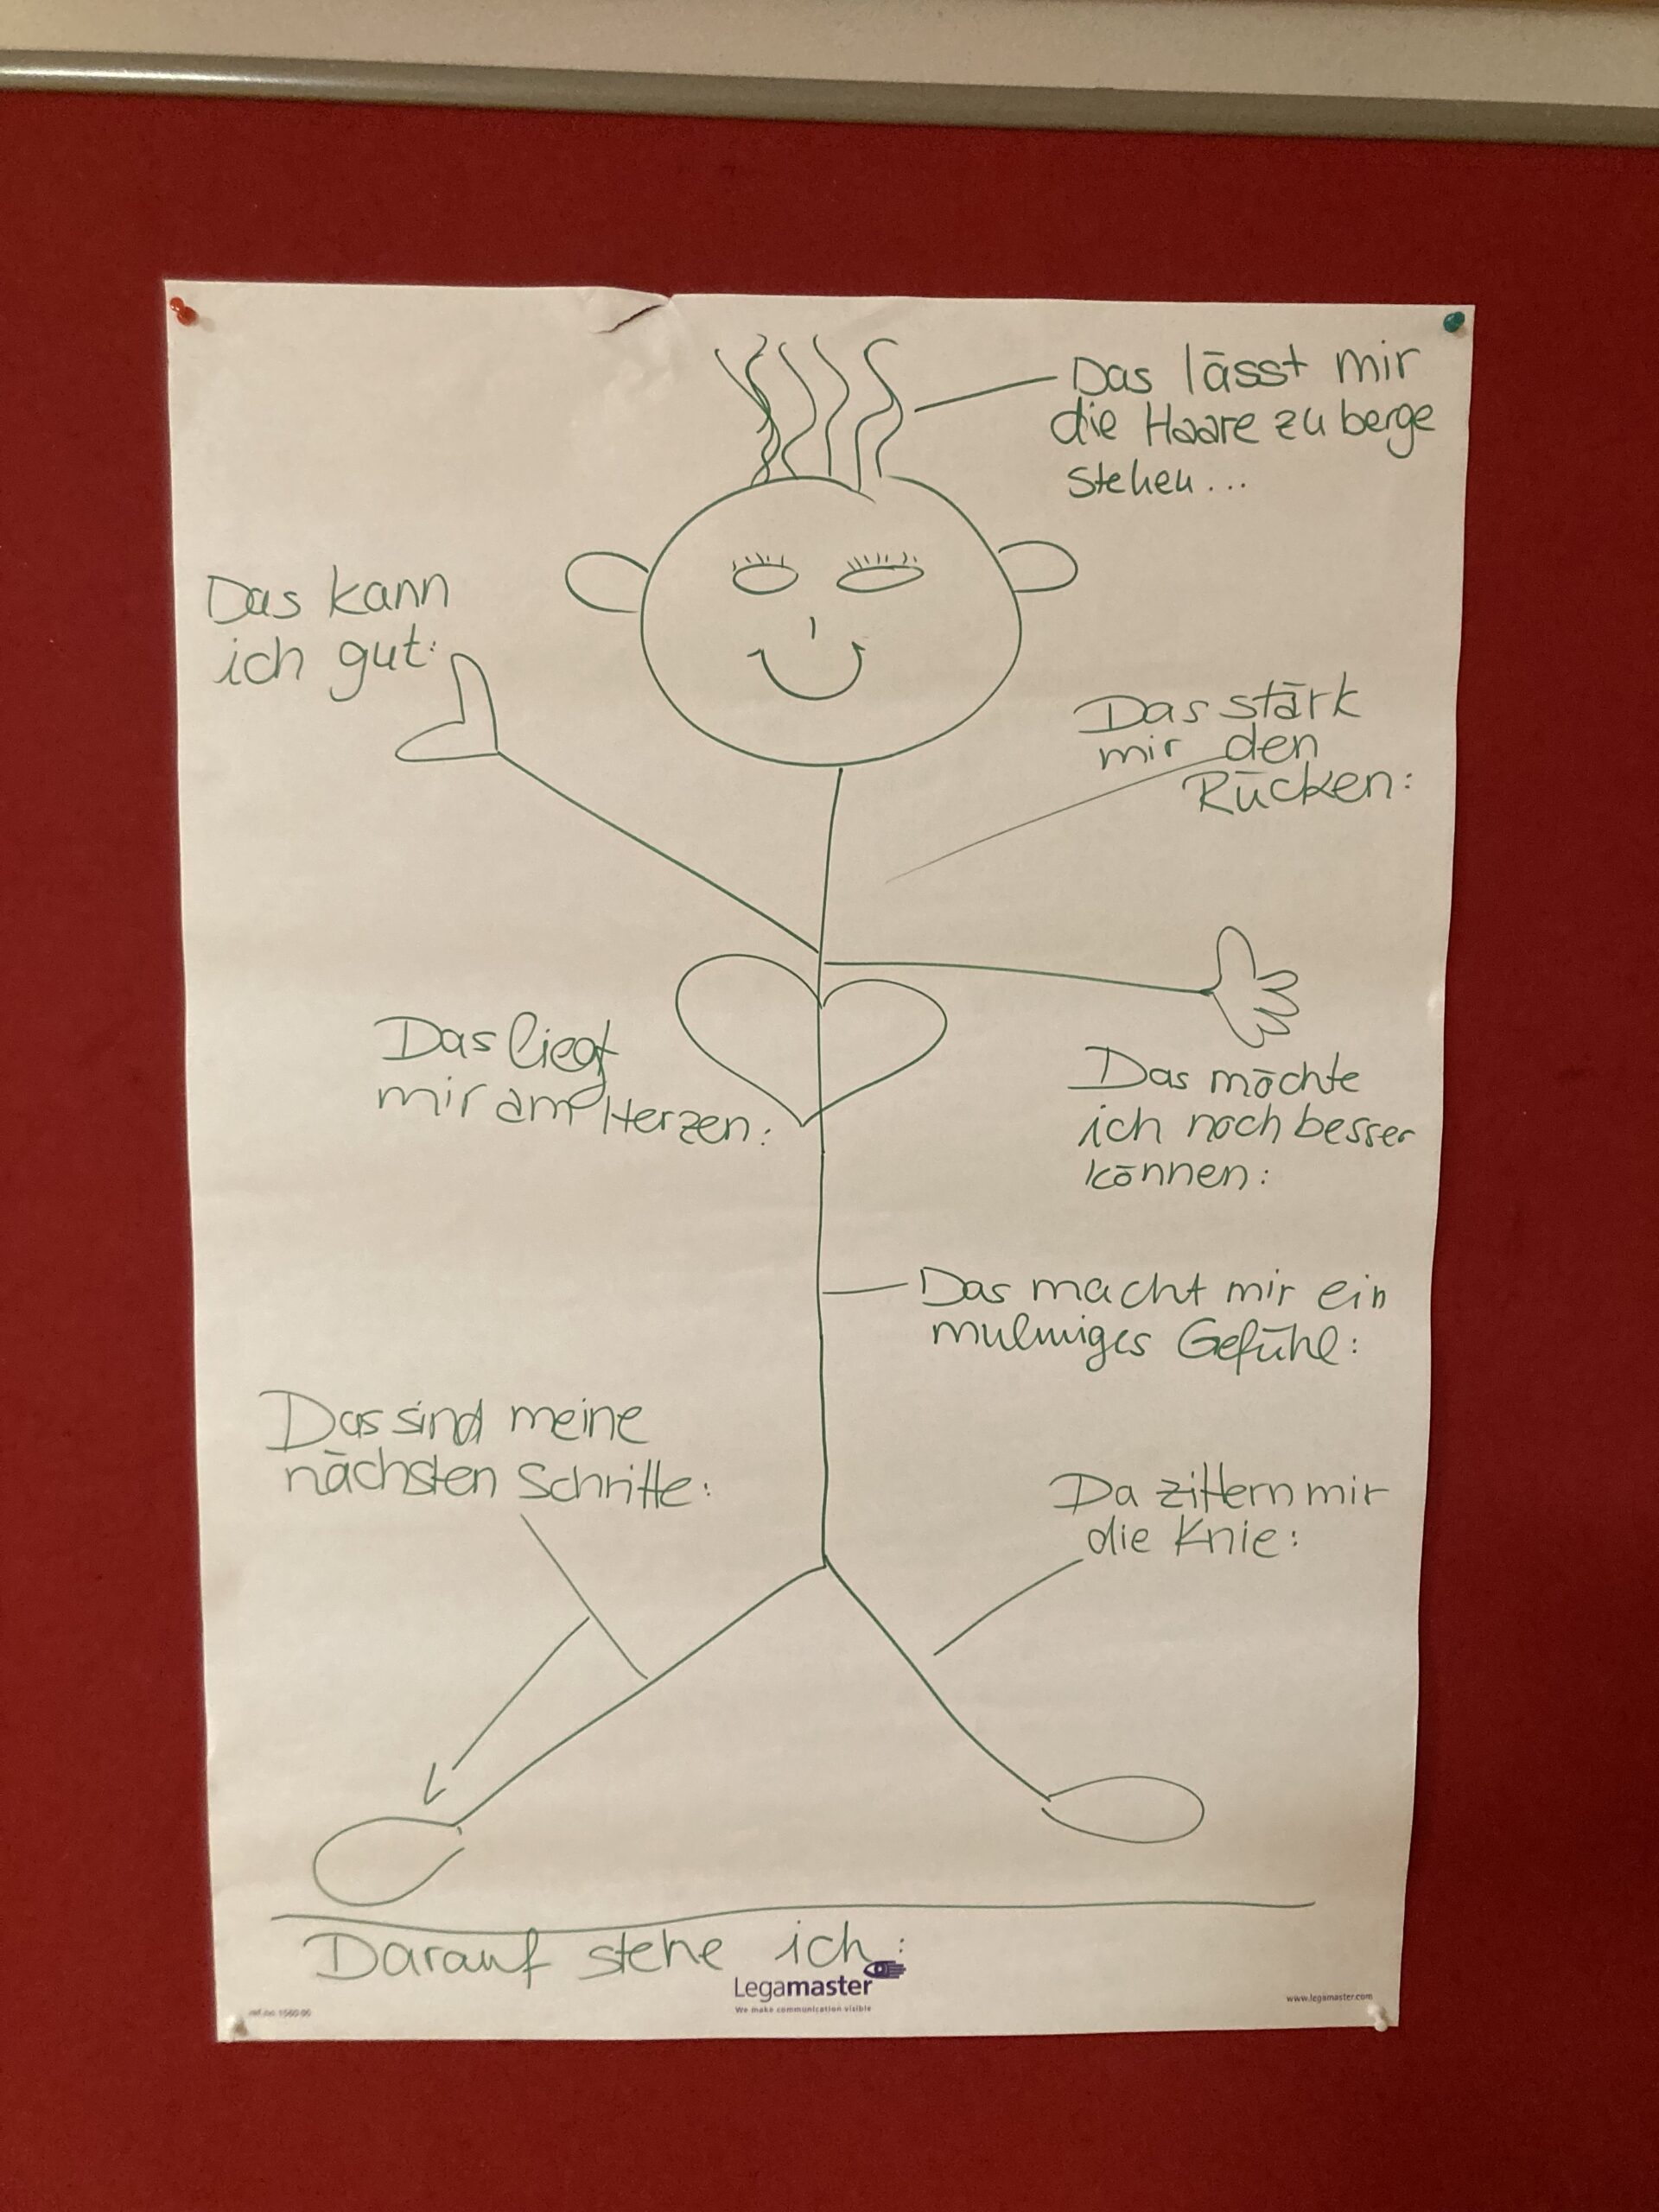 Das lässt mir
die Haare zu berge
stehen...
Das kann
ich gut:
Das stärk
mir den
Rücken:
Das liegt
mir am Herzen:
Das möchte
ich noch besser
können:
Das macht mir ein
mulmiges Gefühl:
Das sind meine
nächsten Schritte:
Da zittern mir
die Knie:
Darauf stehe ich:
Legamaster
We make communication visible
www.legamaster.com